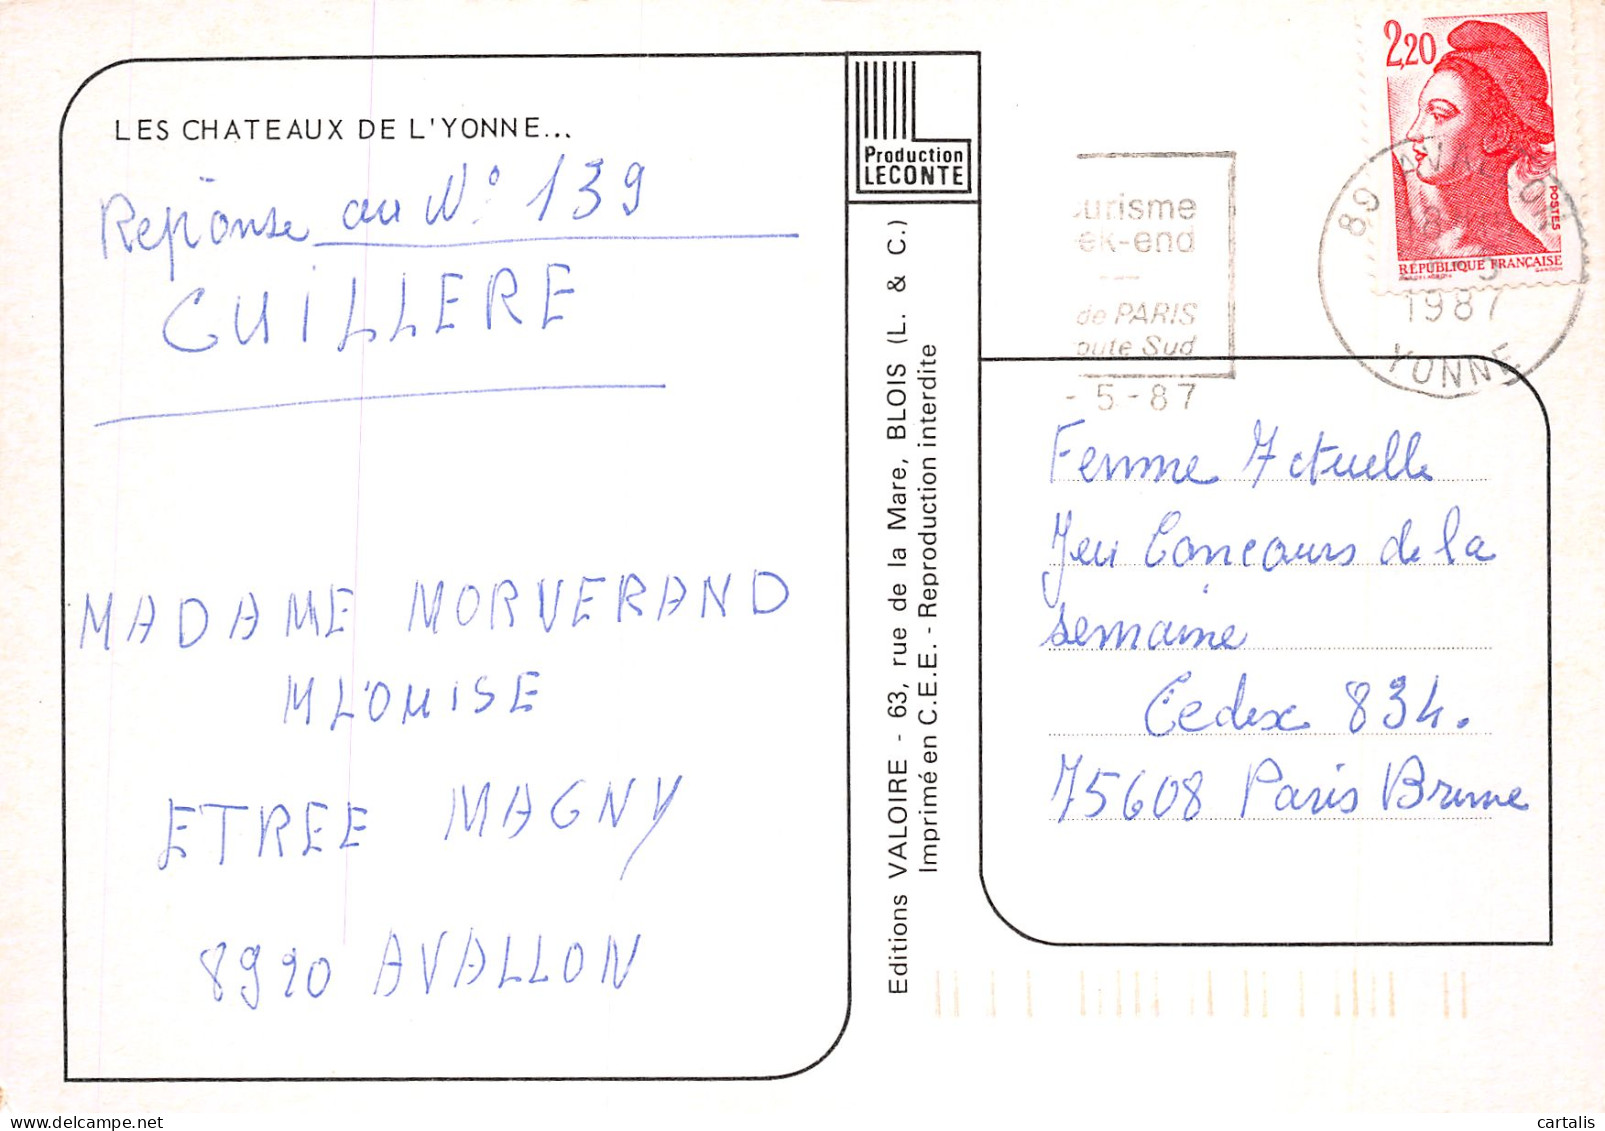 LES CHATEAUX DE L'YONNE...
Reponse au N° 139
CUILLERE
MADAME MORVERAND
M LOUISE
ETREE MAGNY
8920 AVALLON
Production
LECONTE
Editions VALOIRE - 63, rue de la Mare, BLOIS (L. & C.)
Imprimé en C.E.E. - Reproduction interdite
urisme
ek-end
de PARIS
oute Sud
- 5 - 87
2,20
POSTES
RÉPUBLIQUE FRANÇAISE
89 AVALLON
1987
YONNE
Femme Actuelle
Jeu Concours de la
semaine
Cedex 834.
75608 Paris Brune
cartalis
delcampe.net